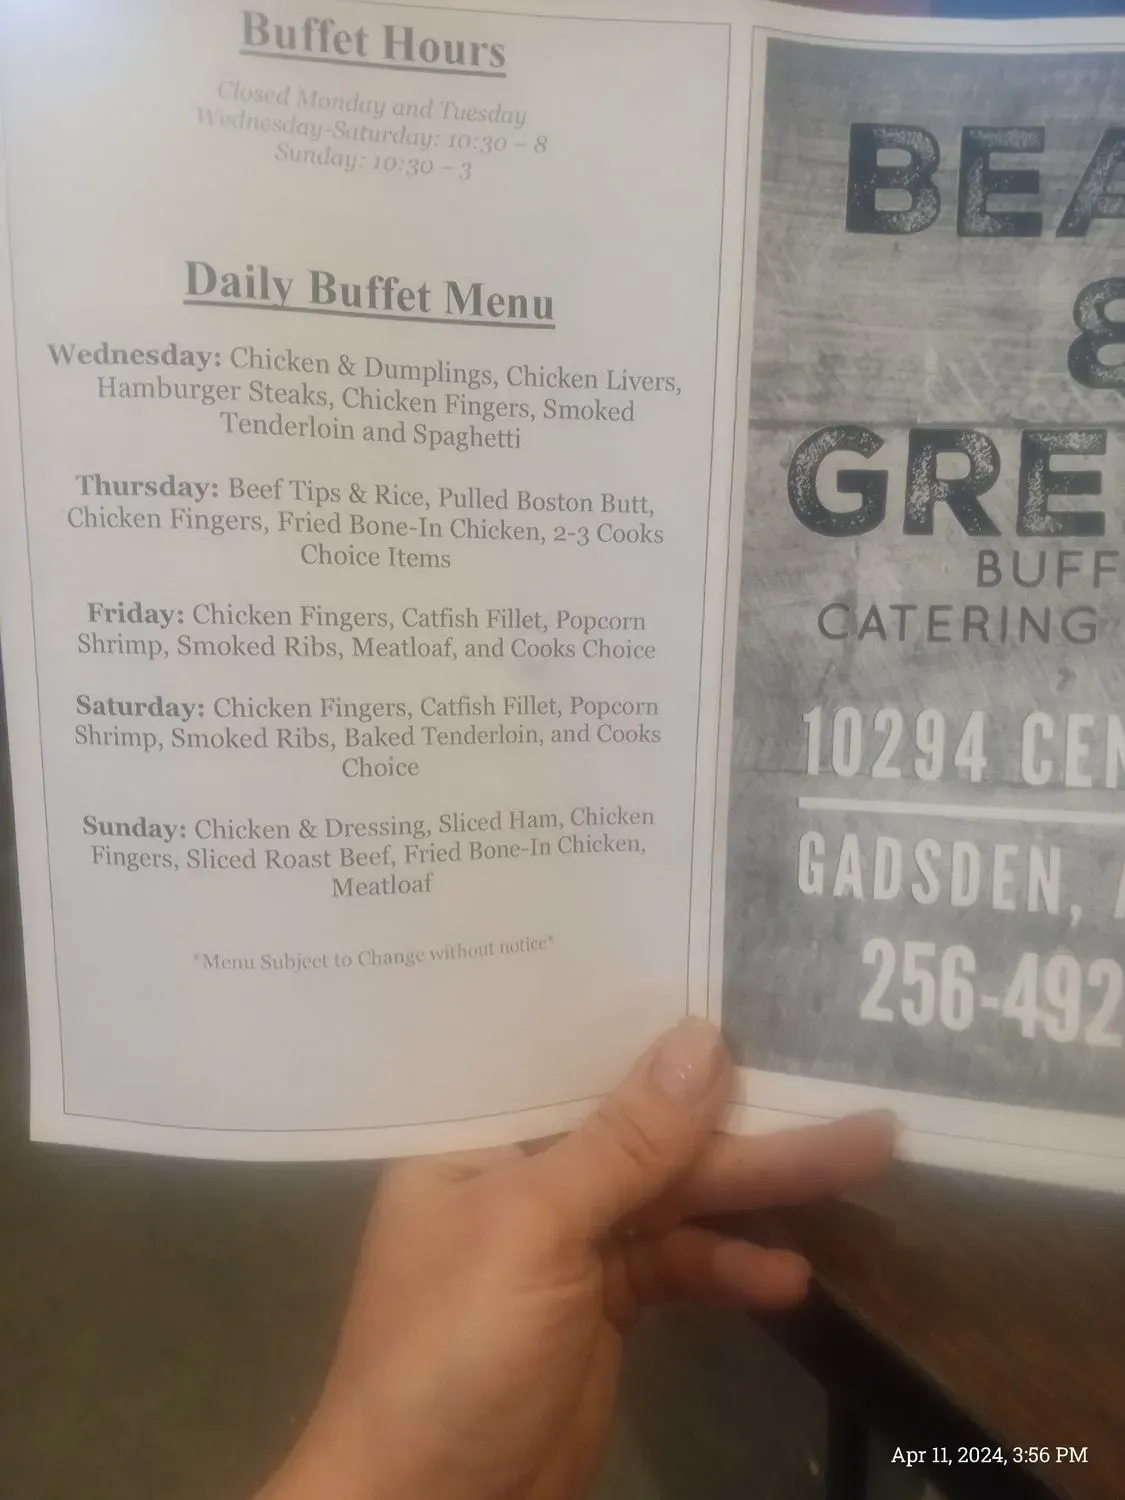 Buffet Hours
Closed Monday and Tuesday
Wednesday-Saturday: 10:30 – 8
Sunday: 10:30 – 3
Daily Buffet Menu
Wednesday: Chicken & Dumplings, Chicken Livers,
Hamburger Steaks, Chicken Fingers, Smoked
Tenderloin and Spaghetti
Thursday: Beef Tips & Rice, Pulled Boston Butt,
Chicken Fingers, Fried Bone-In Chicken, 2-3 Cooks
Choice Items
Friday: Chicken Fingers, Catfish Fillet, Popcorn
Shrimp, Smoked Ribs, Meatloaf, and Cooks Choice
Saturday: Chicken Fingers, Catfish Fillet, Popcorn
Shrimp, Smoked Ribs, Baked Tenderloin, and Cooks
Choice
Sunday: Chicken & Dressing, Sliced Ham, Chicken
Fingers, Sliced Roast Beef, Fried Bone-In Chicken,
Meatloaf
*Menu Subject to Change without notice*
BEA
&
GRE
BUFF
CATERING
10294 CEN
GADSDEN,
256-492
Apr 11, 2024, 3:56 PM